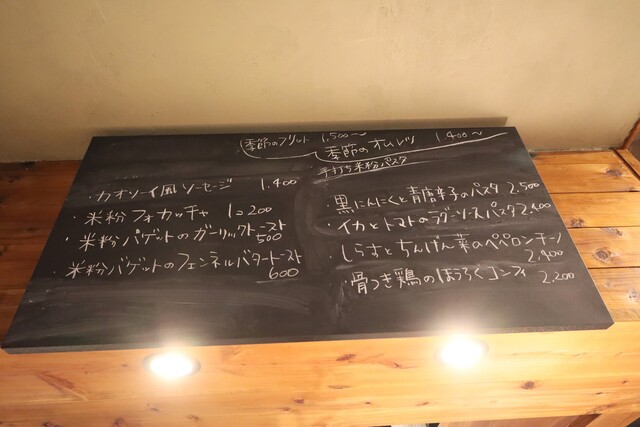 季節のフリット 1,500〜
季節のオムレツ 1,400〜
手打ち米粉パスタ
・カオソーイ風ソーセージ 1,400
・米粉フォカッチャ 1コ200
・米粉バゲットのガーリックトースト
500
・米粉バゲットのフェンネルバタートースト
600
・黒にんにくと青唐辛子のパスタ 2,500
・イカとトマトのラグーソースパスタ
・しらすとちんげん菜のペペロンチーノ
2,400
・骨つき鶏のほうろくコンフィ
2,200